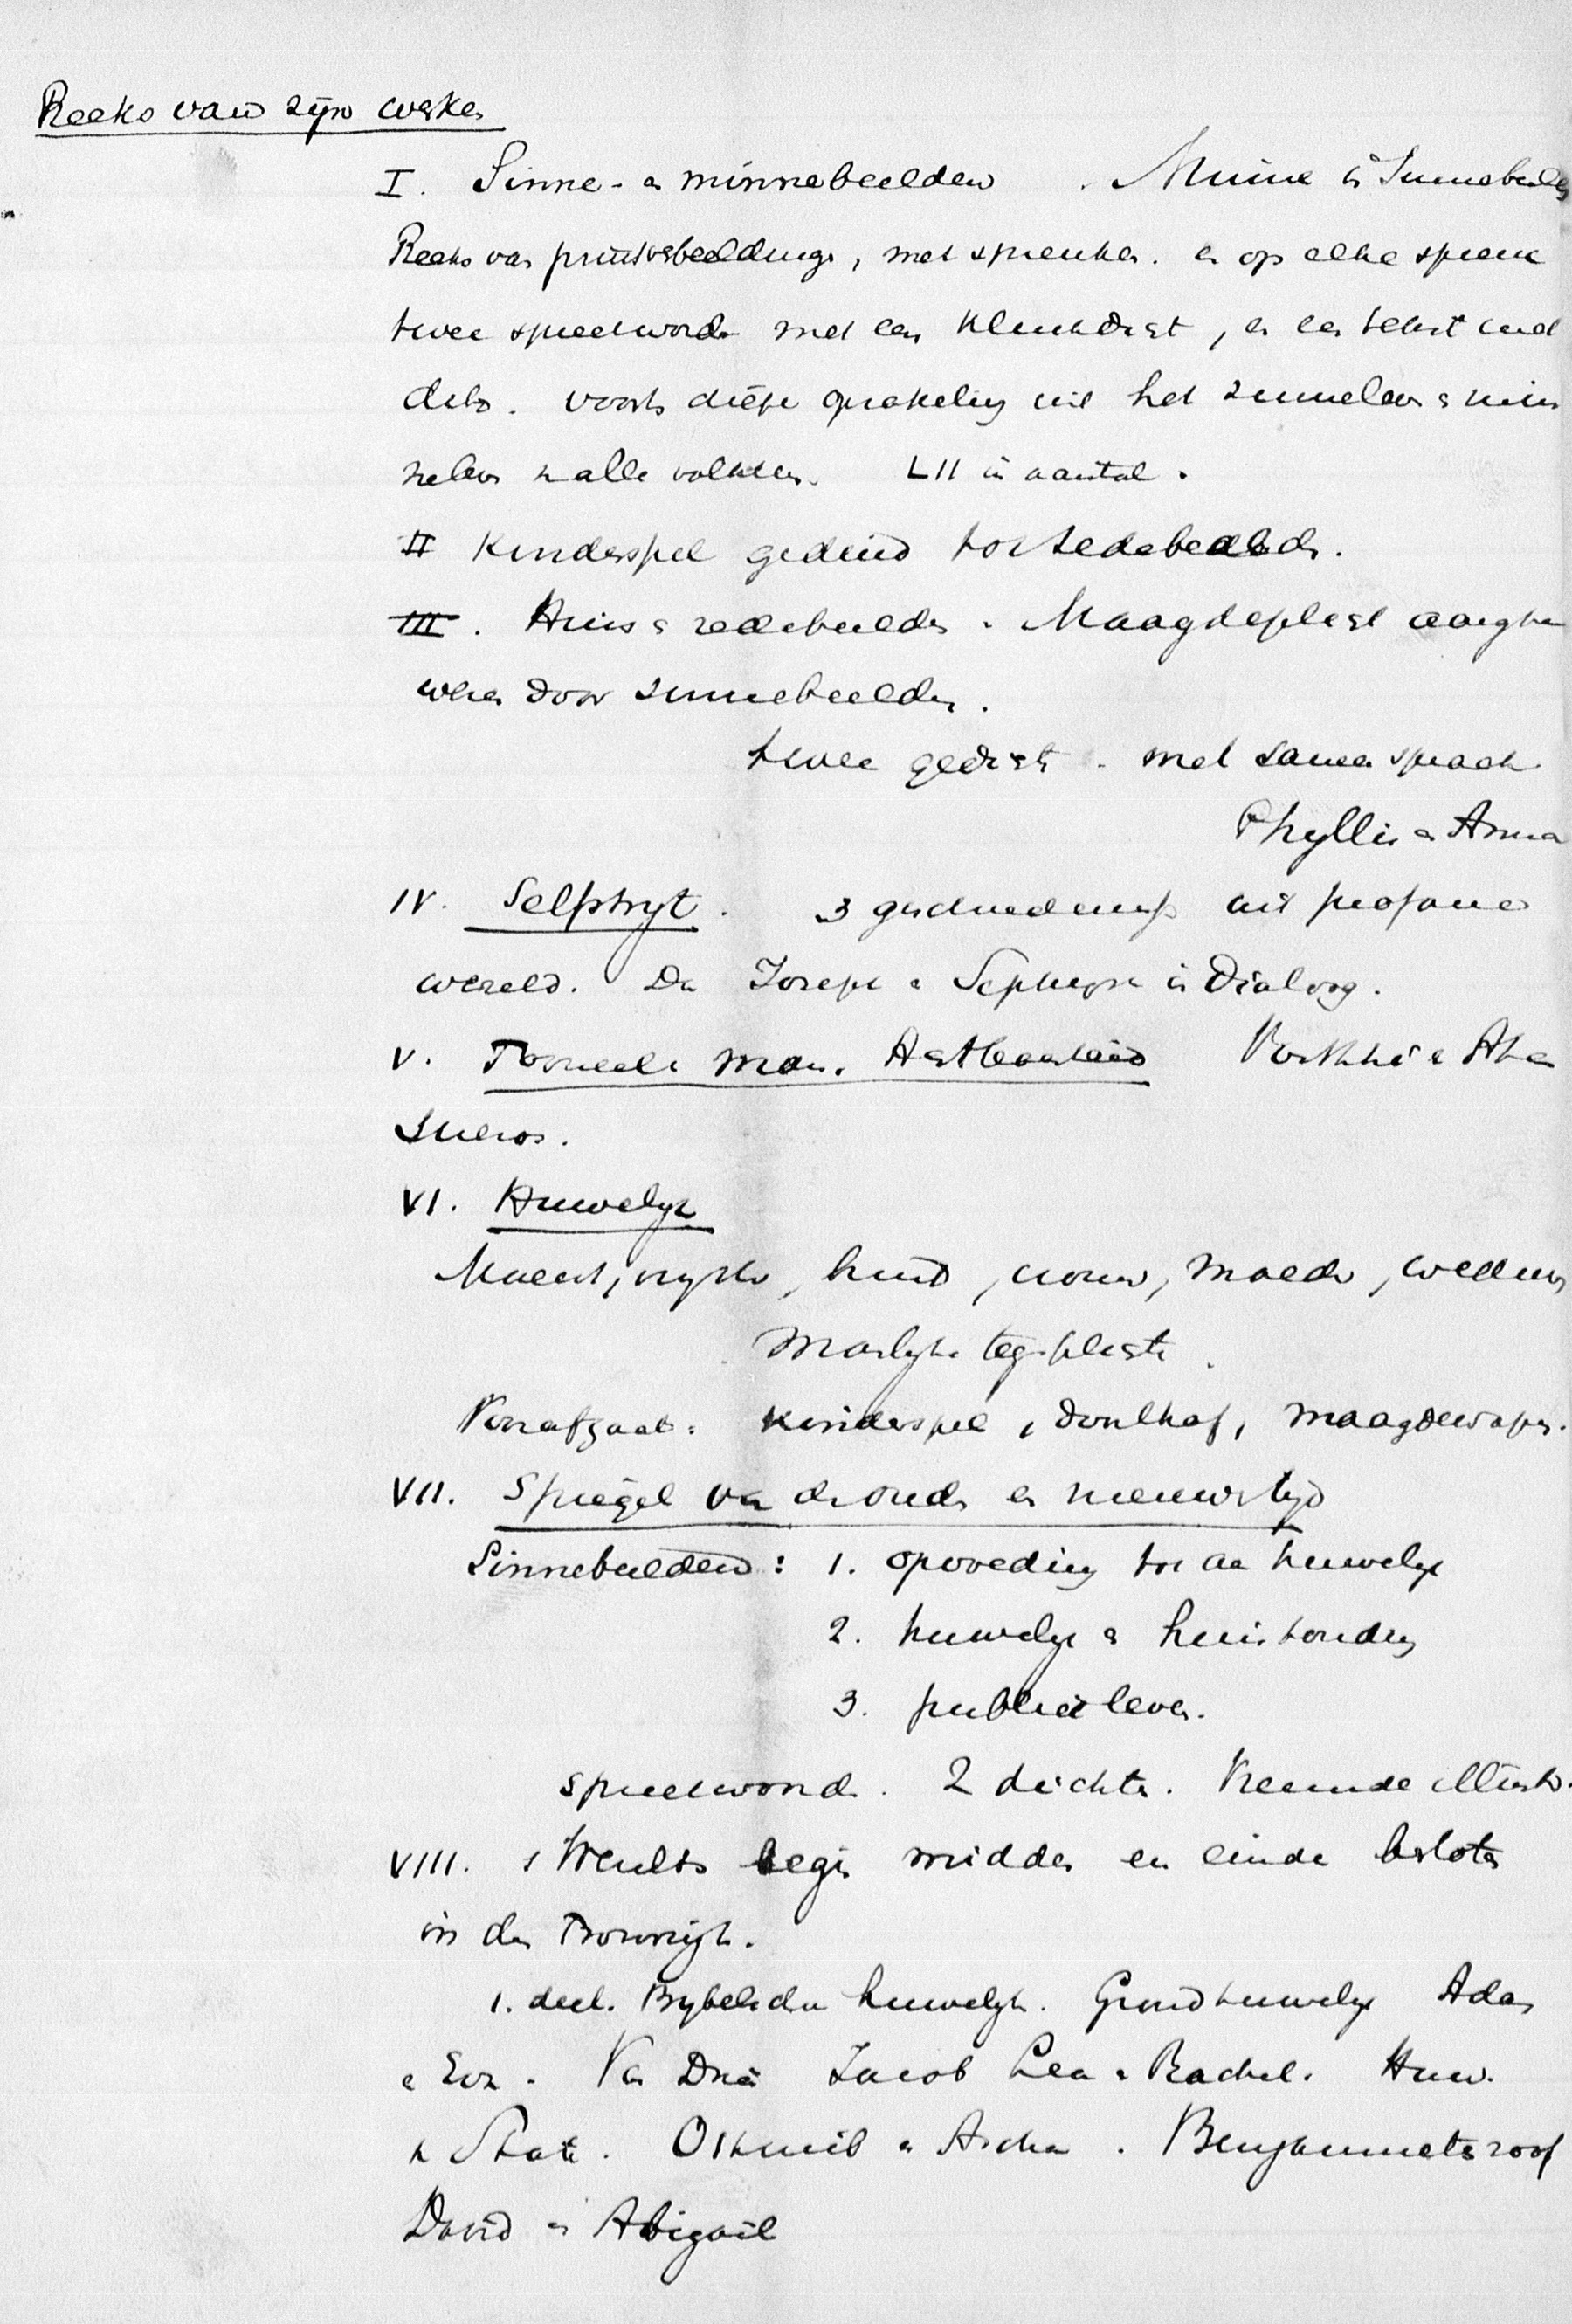 Reeks van zijn werken
I. Sinne- en minnebeelden. Minne en Sinnebeelden
Reeks van printverbeeldinge, met spreuken. en op elke spreuk
twee spreekwoorden met een klinkdicht, en een tekst
voorts het zinneleven en
in alle volken. LII in aantal.
II Kinderspel geduid tot sedebeelden.
III. Huis en zedebeelden. Maagdeplicht aange
wezen door sinnebeelden.
twee gedicht. met samenspraak
Phyllis en Anna
IV. Selfstryt. 3 geschiedenis uit profane
wereld. Dan Joseph en Sephyra in Dialoog.
V. Tooneel der Man. Achtbaarheid Vasthi en Aha
sueros.
VI. Huwelyk
Maecht, vryster, bruid, vrouw, moeder, weduwe
Manlyke tegenplicht.
Voorafgaat: Kinderspel, doolhof, maagdewapen.
VII. Spiegel van de oude en nieuwe tijd
Sinnebeelden: 1. opvoeding tot aan huwelyk
2. huwelyk en huishouding
3. publiek leven.
spreekwoord. 2 dichter. Vreemde
VIII. 's Werelts begin midden en einde besloten
in den Trouwrijk.
1. deel. Bybelsche huwelyk. Grondhuwelyk Adam
en Eva. Van Drie Jacob Lea en Rachel. Huw.
Othniel en Achsa. Benjaminietsroof
David en Abigail